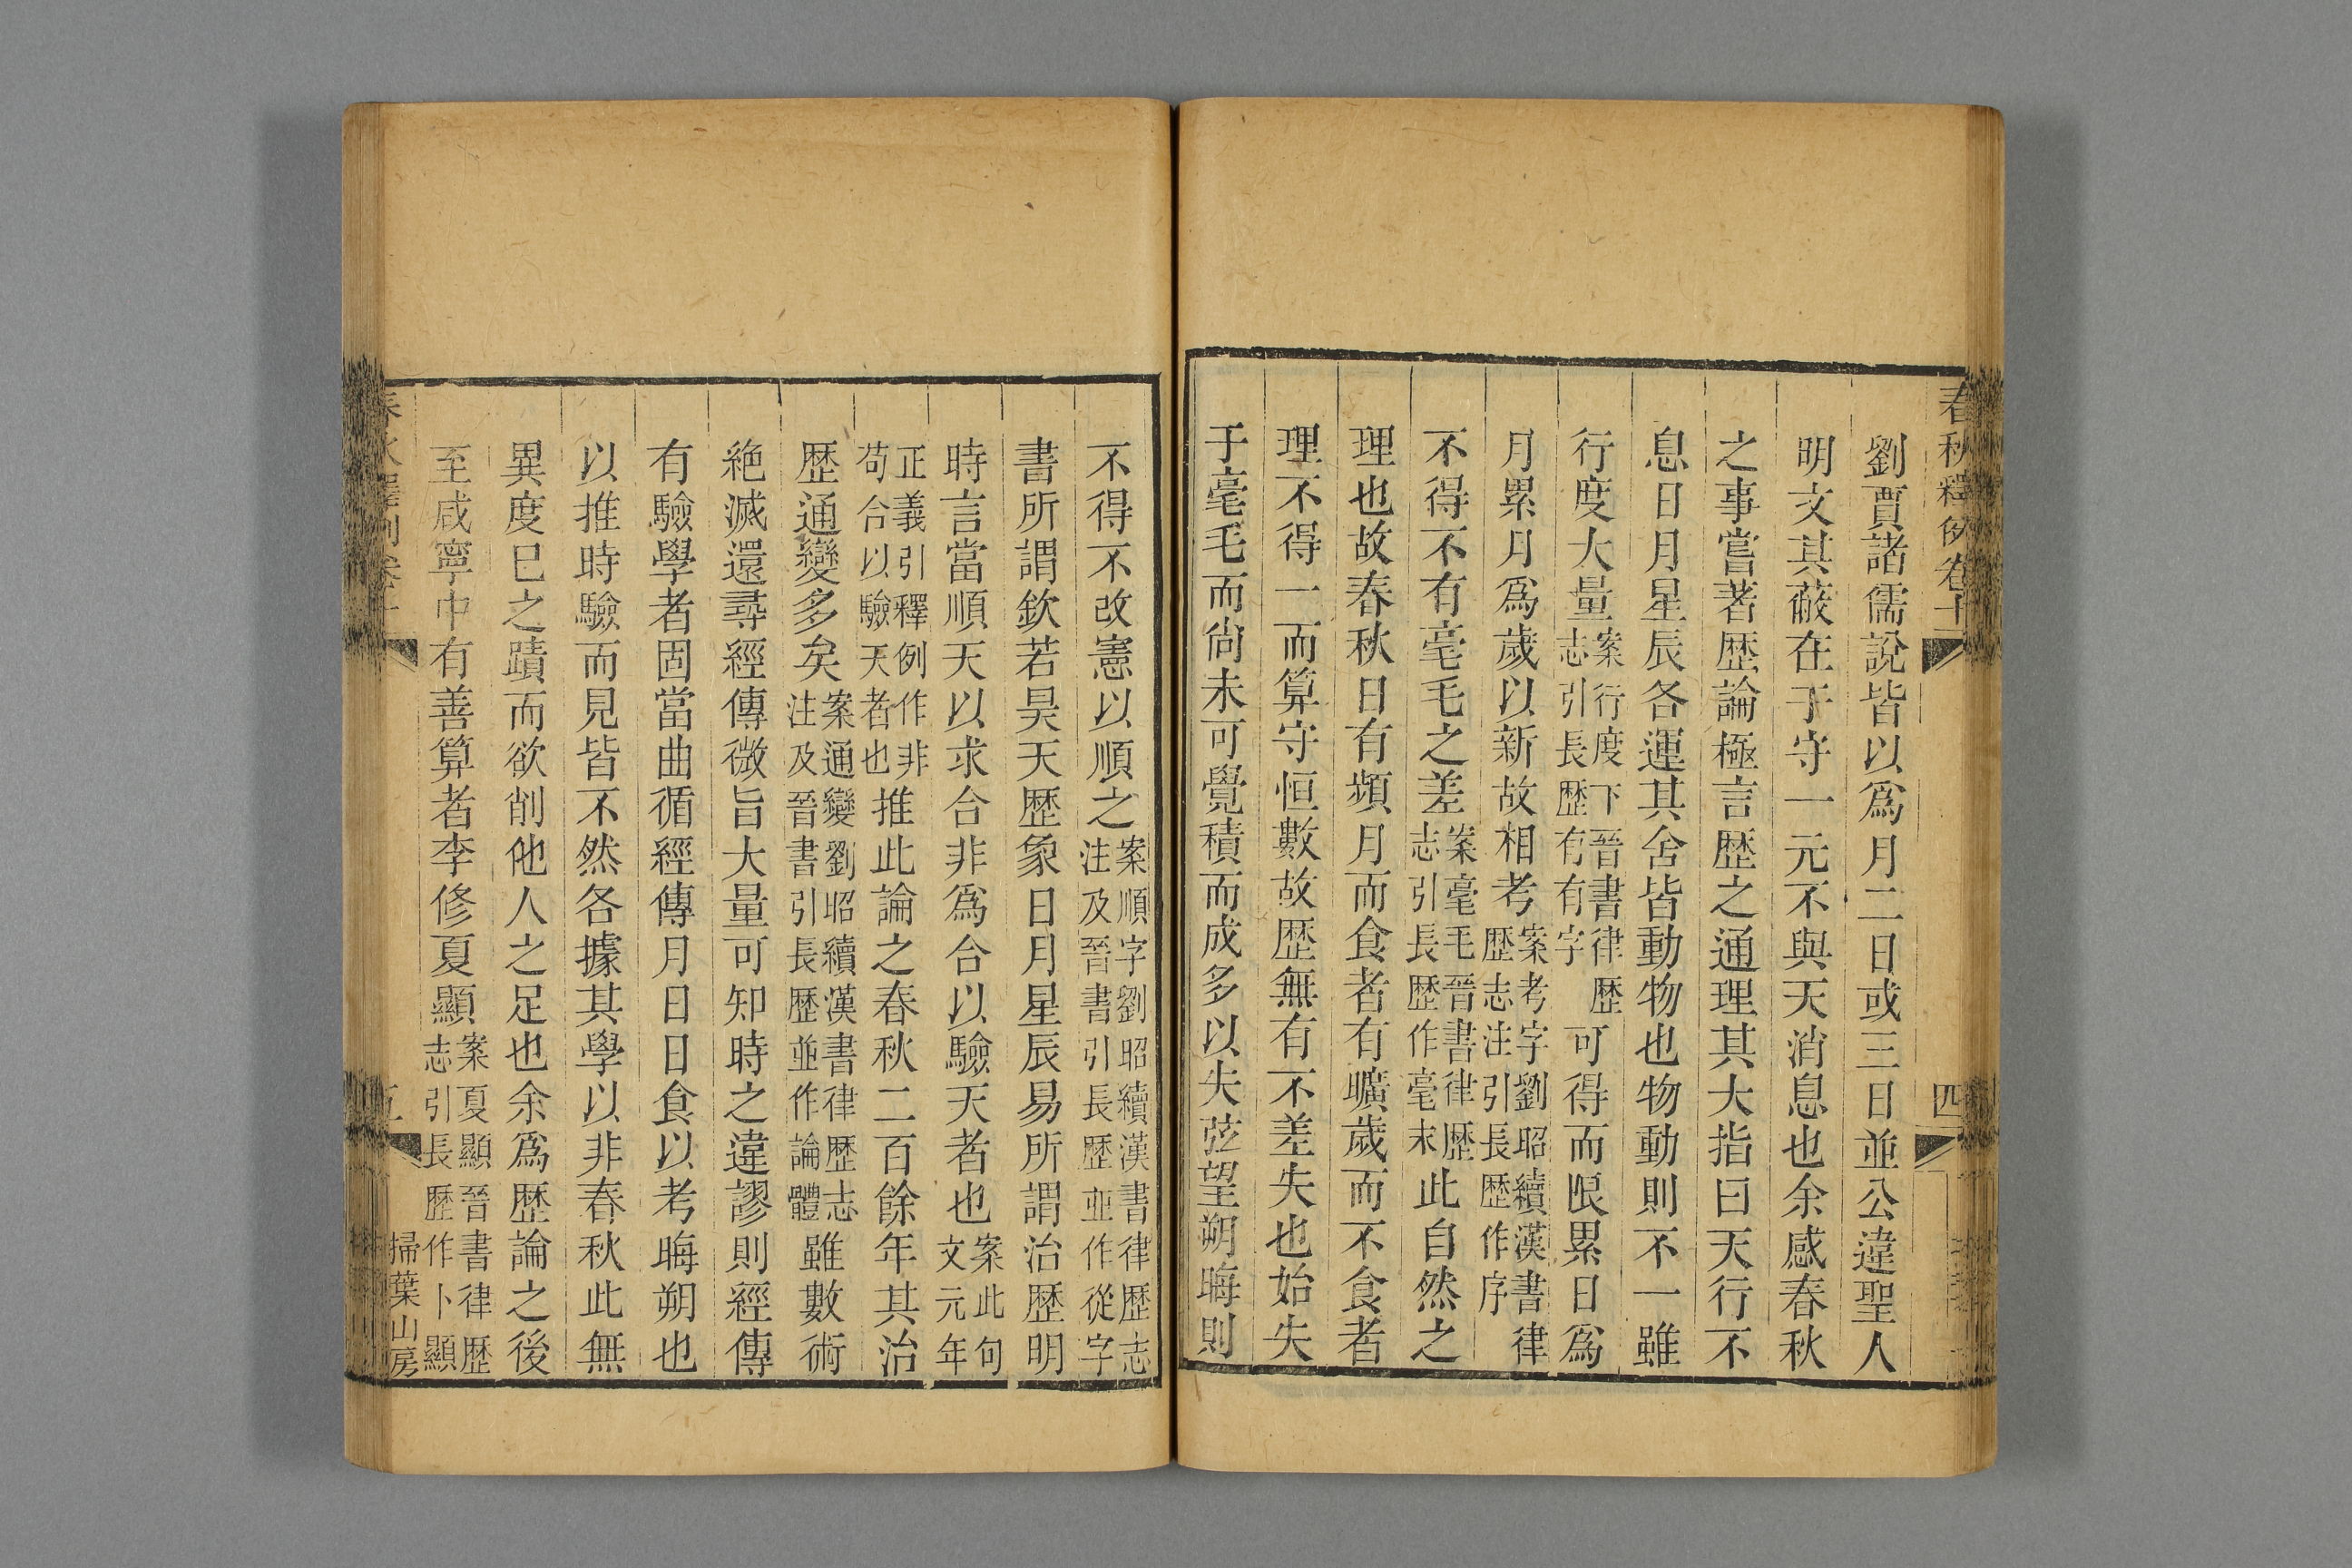 春秋釋例卷十
四
劉賈諸儒說皆以爲月二日或三日並公違聖人
明文其蔽在于守一元不與天消息也余感春秋
之事嘗著歷論極言歷之通理其大指曰天行不
息日月星辰各運其舍皆動物也物動則不一雖
行度大量案行度下晉書律歷志引長歷有有字可得而限累日爲
月累月爲歲以新故相考案考字劉昭續漢書律歷志注引長歷作序
不得不有毫毛之差案毫毛晉書律歷志引長歷作毫末此自然之
理也故春秋日有頻月而食者有曠歲而不食者
理不得一而算守恒數故歷無有不差失也始失
于毫毛而尙未可覺積而成多以失弦望朔晦則
不得不改憲以順之案順字劉昭續漢書律歷志注及晉書引長歷並作從字
書所謂欽若昊天歷象日月星辰易所謂治歷明
時言當順天以求合非爲合以驗天者也案此句文元年
正義引釋例作非苟合以驗天者也推此論之春秋二百餘年其治
歷通變多矣案通變劉昭續漢書律歷志注及晉書引長歷並作論體雖數術
絶滅還尋經傳微旨大量可知時之違謬則經傳
有驗學者固當曲循經傳月日日食以考晦朔也
以推時驗而見皆不然各據其學以非春秋此無
異度巳之蹟而欲削他人之足也余爲歷論之後
至咸寧中有善算者李修夏顯案夏顯晉書律歷志引長歷作卜顯
掃葉山房